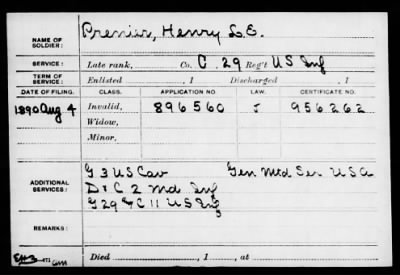 NAME OF SOLDIER: Premier, Henry L. E.
SERVICE: Late rank, Co. C. 29 Reg't US Inf
TERM OF SERVICE: Enlisted , 1 Discharged , 1
DATE OF FILING. CLASS. APPLICATION NO. LAW. CERTIFICATE NO.
1890 Aug 4 Invalid, 896560 J 956262
Widow,
Minor,
ADDITIONAL SERVICES: G 3 US Cav Gen Mtd Ser USA
D & C 2 Md Inf
G 29 & C 11 US Inf
REMARKS:
Died , 1 , at